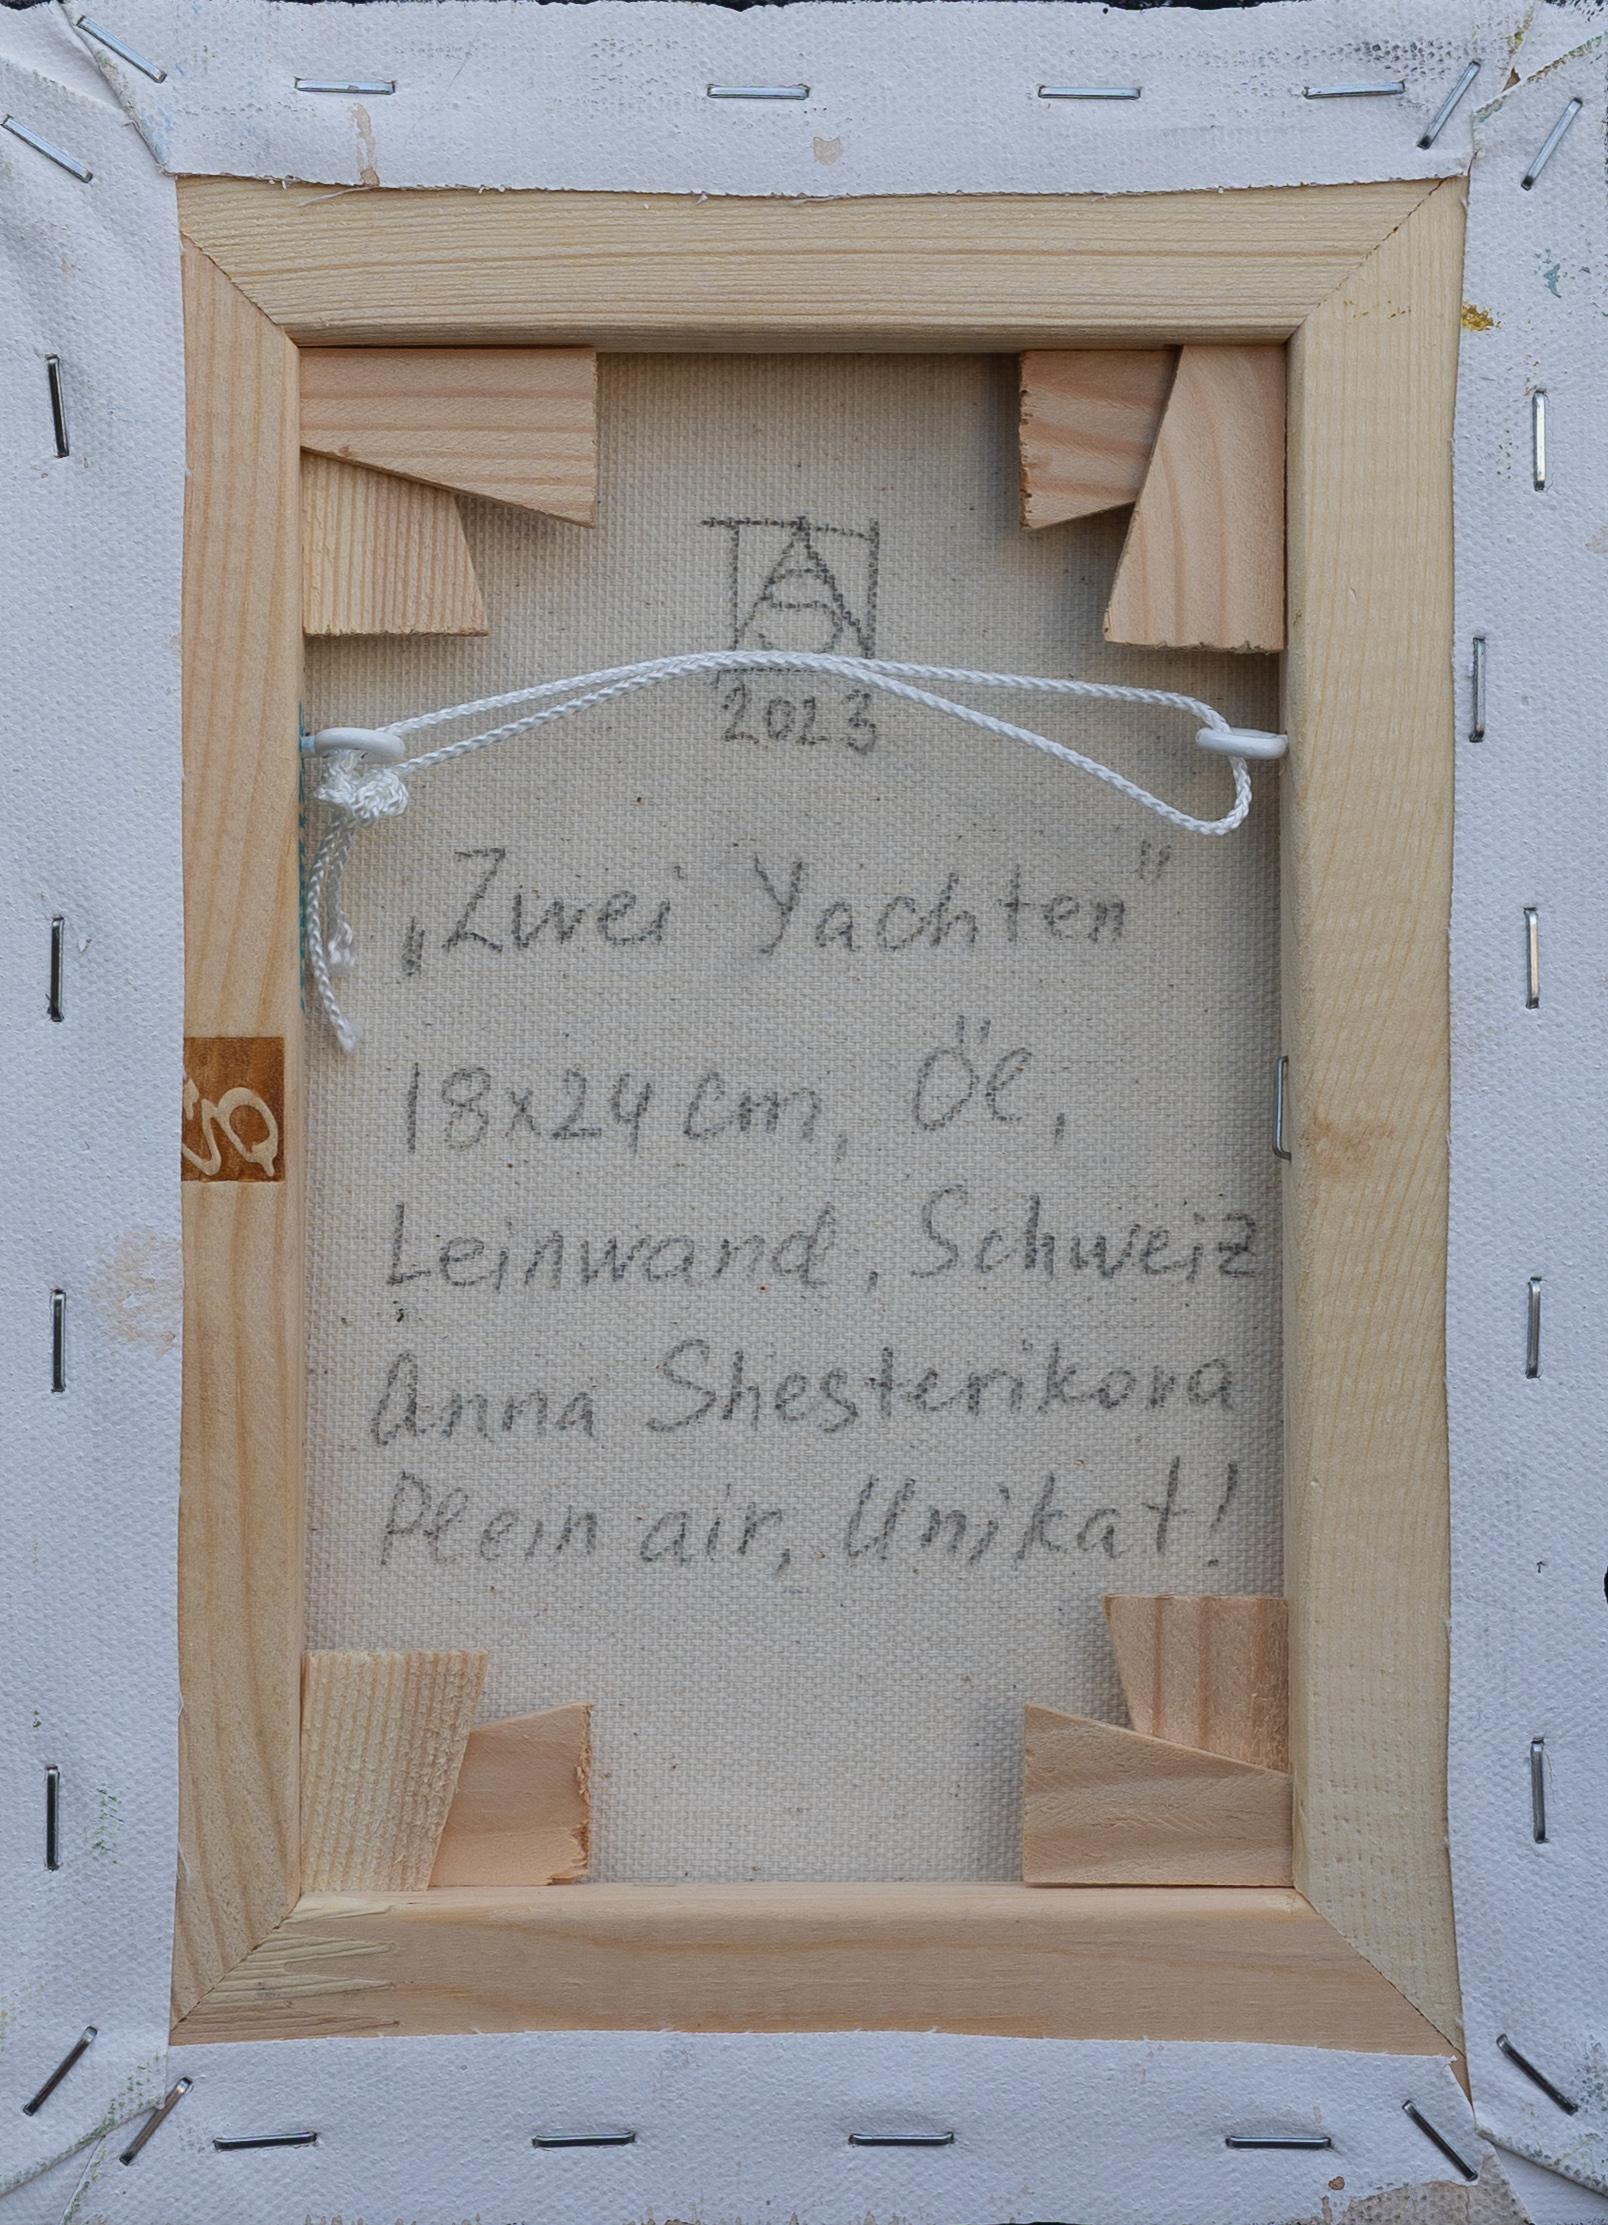 2023
„Zwei Yachten"
18x24 cm, Öl,
Leinwand, Schweiz
Anna Shesterikova
Plein air, Unikat!